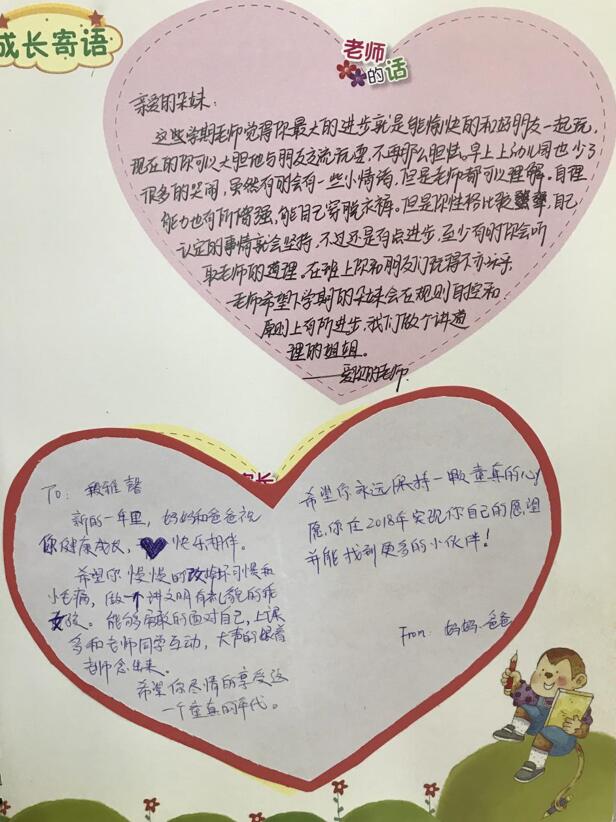 成长寄语
老师
的话
亲爱的朵妹：
这些学期老师觉得你最大的进步就是能愉快的和好朋友一起玩，
现在的你可以大胆地与朋友交流玩耍，不再那么胆怯。早上上幼儿园也少了
很多的哭闹，虽然有时会有一些小情绪，但是老师都可以理解。自理
能力也有所增强，能自己穿脱衣裤。但是你性格比较，自己
认定的事情就会坚持，不过还是有点进步，至少有时你会听
取老师的道理。在班上你和朋友们玩得不亦乐乎，
老师希望下学期的朵妹会在规则自控和
原则上有所进步，我们做个讲道
理的姐姐。
——爱你的老师.
长
To: 雅馨
新的一年里，妈妈和爸爸祝
你健康成长，快乐相伴。
希望你慢慢的改掉坏习惯和
小毛病，做一个讲文明有礼貌的乖
女孩。能够勇敢的面对自己，上课
多和老师同学互动，大声的跟着
老师念出来。
希望你尽情的享受这
一个童真的年代。
希望你永远保持一颗童真的心！
愿你在2018年实现你自己的愿望
并能找到更多的小伙伴！
From: 妈妈、爸爸